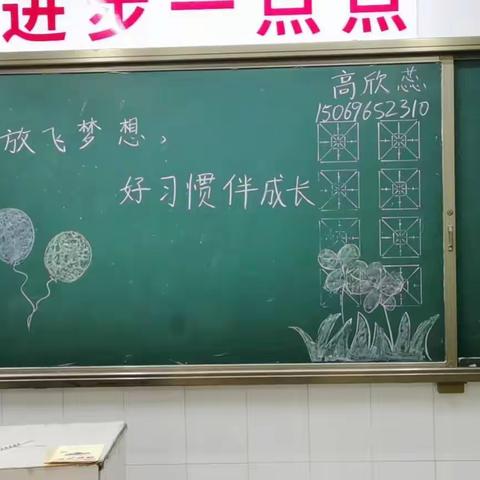 进步一点点
高欣蕊
15069652310
放飞梦想，
好习惯伴成长